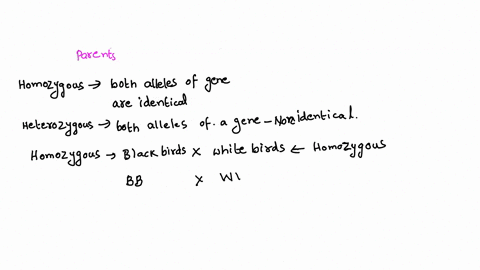 Parents
Homozygous → both alleles of gene
are identical
Heterozygous → both alleles of a gene - Non identical.
Homozygous → Black birds X white birds ← Homozygous
BB X WI